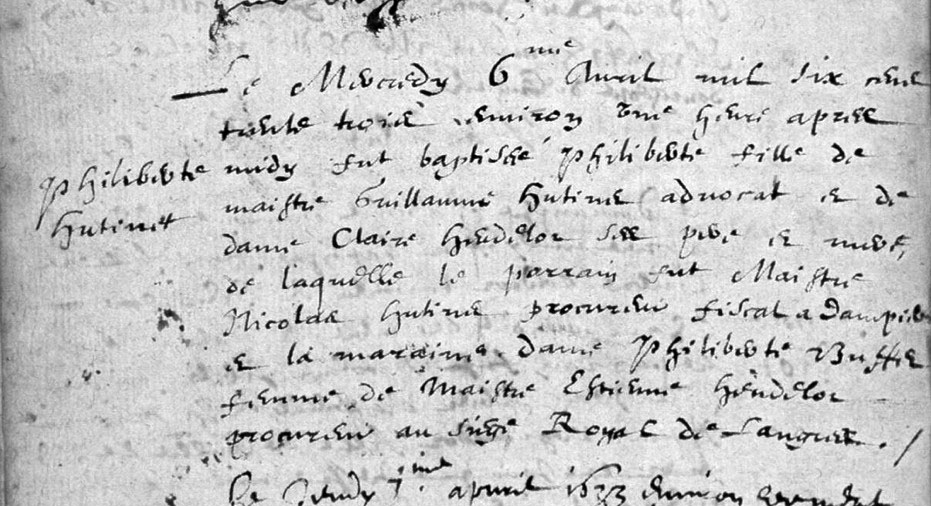 Le Mercredy 6me Avril mil six cent
trente trois environ une heure apres
Philiberte
Hutinet
midy fut baptisée Philiberte fille de
maistre Guillaume Hutinet advocat et de
dame Claire Hendelot ses pere et mere,
de laquelle le parrain fut Maistre
Nicolas Hutinet procureur fiscal a Dampier
et la maraine dame Philiberte
femme de Maistre Estienne Hendelot
procureur au siege Royal de Langres.
Le Jeudy 7ime apvril 1633 environ